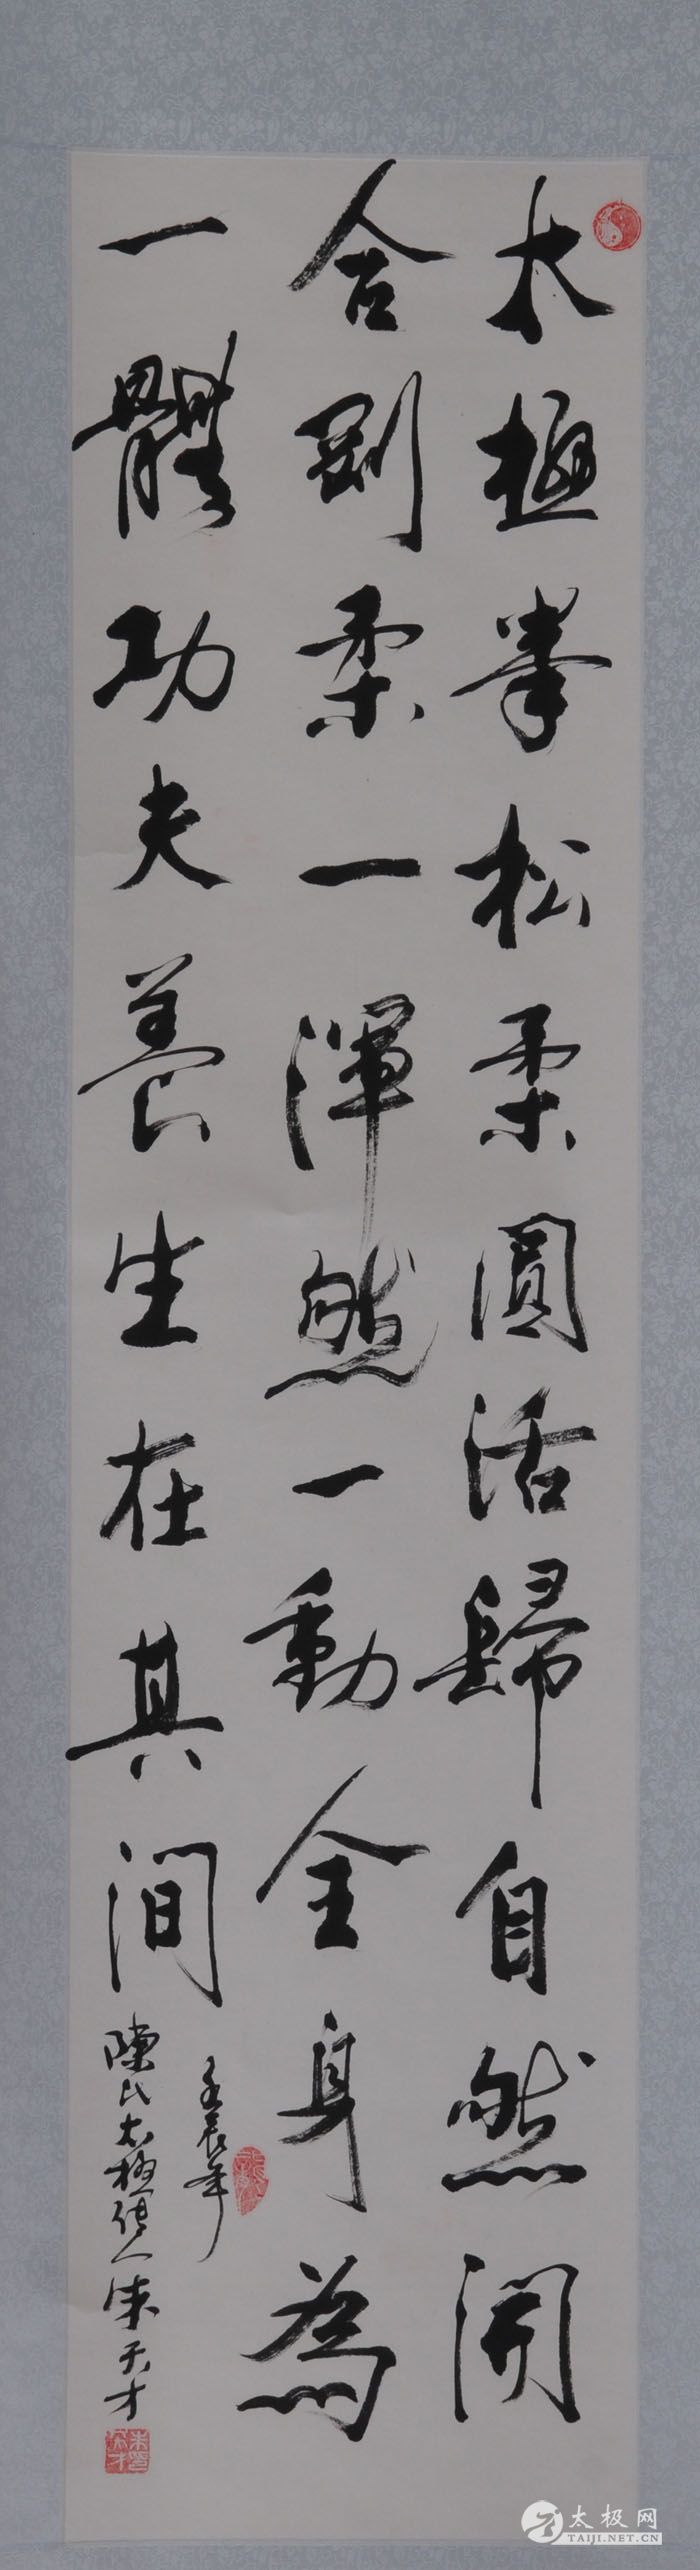 太極拳松柔圓活歸自然開
合剛柔一渾然一動全身為
一體功夫養生在其間
壬辰年
陳氏太極傳人朱天才
朱天才印
太极网
TAIJI.NET.CN